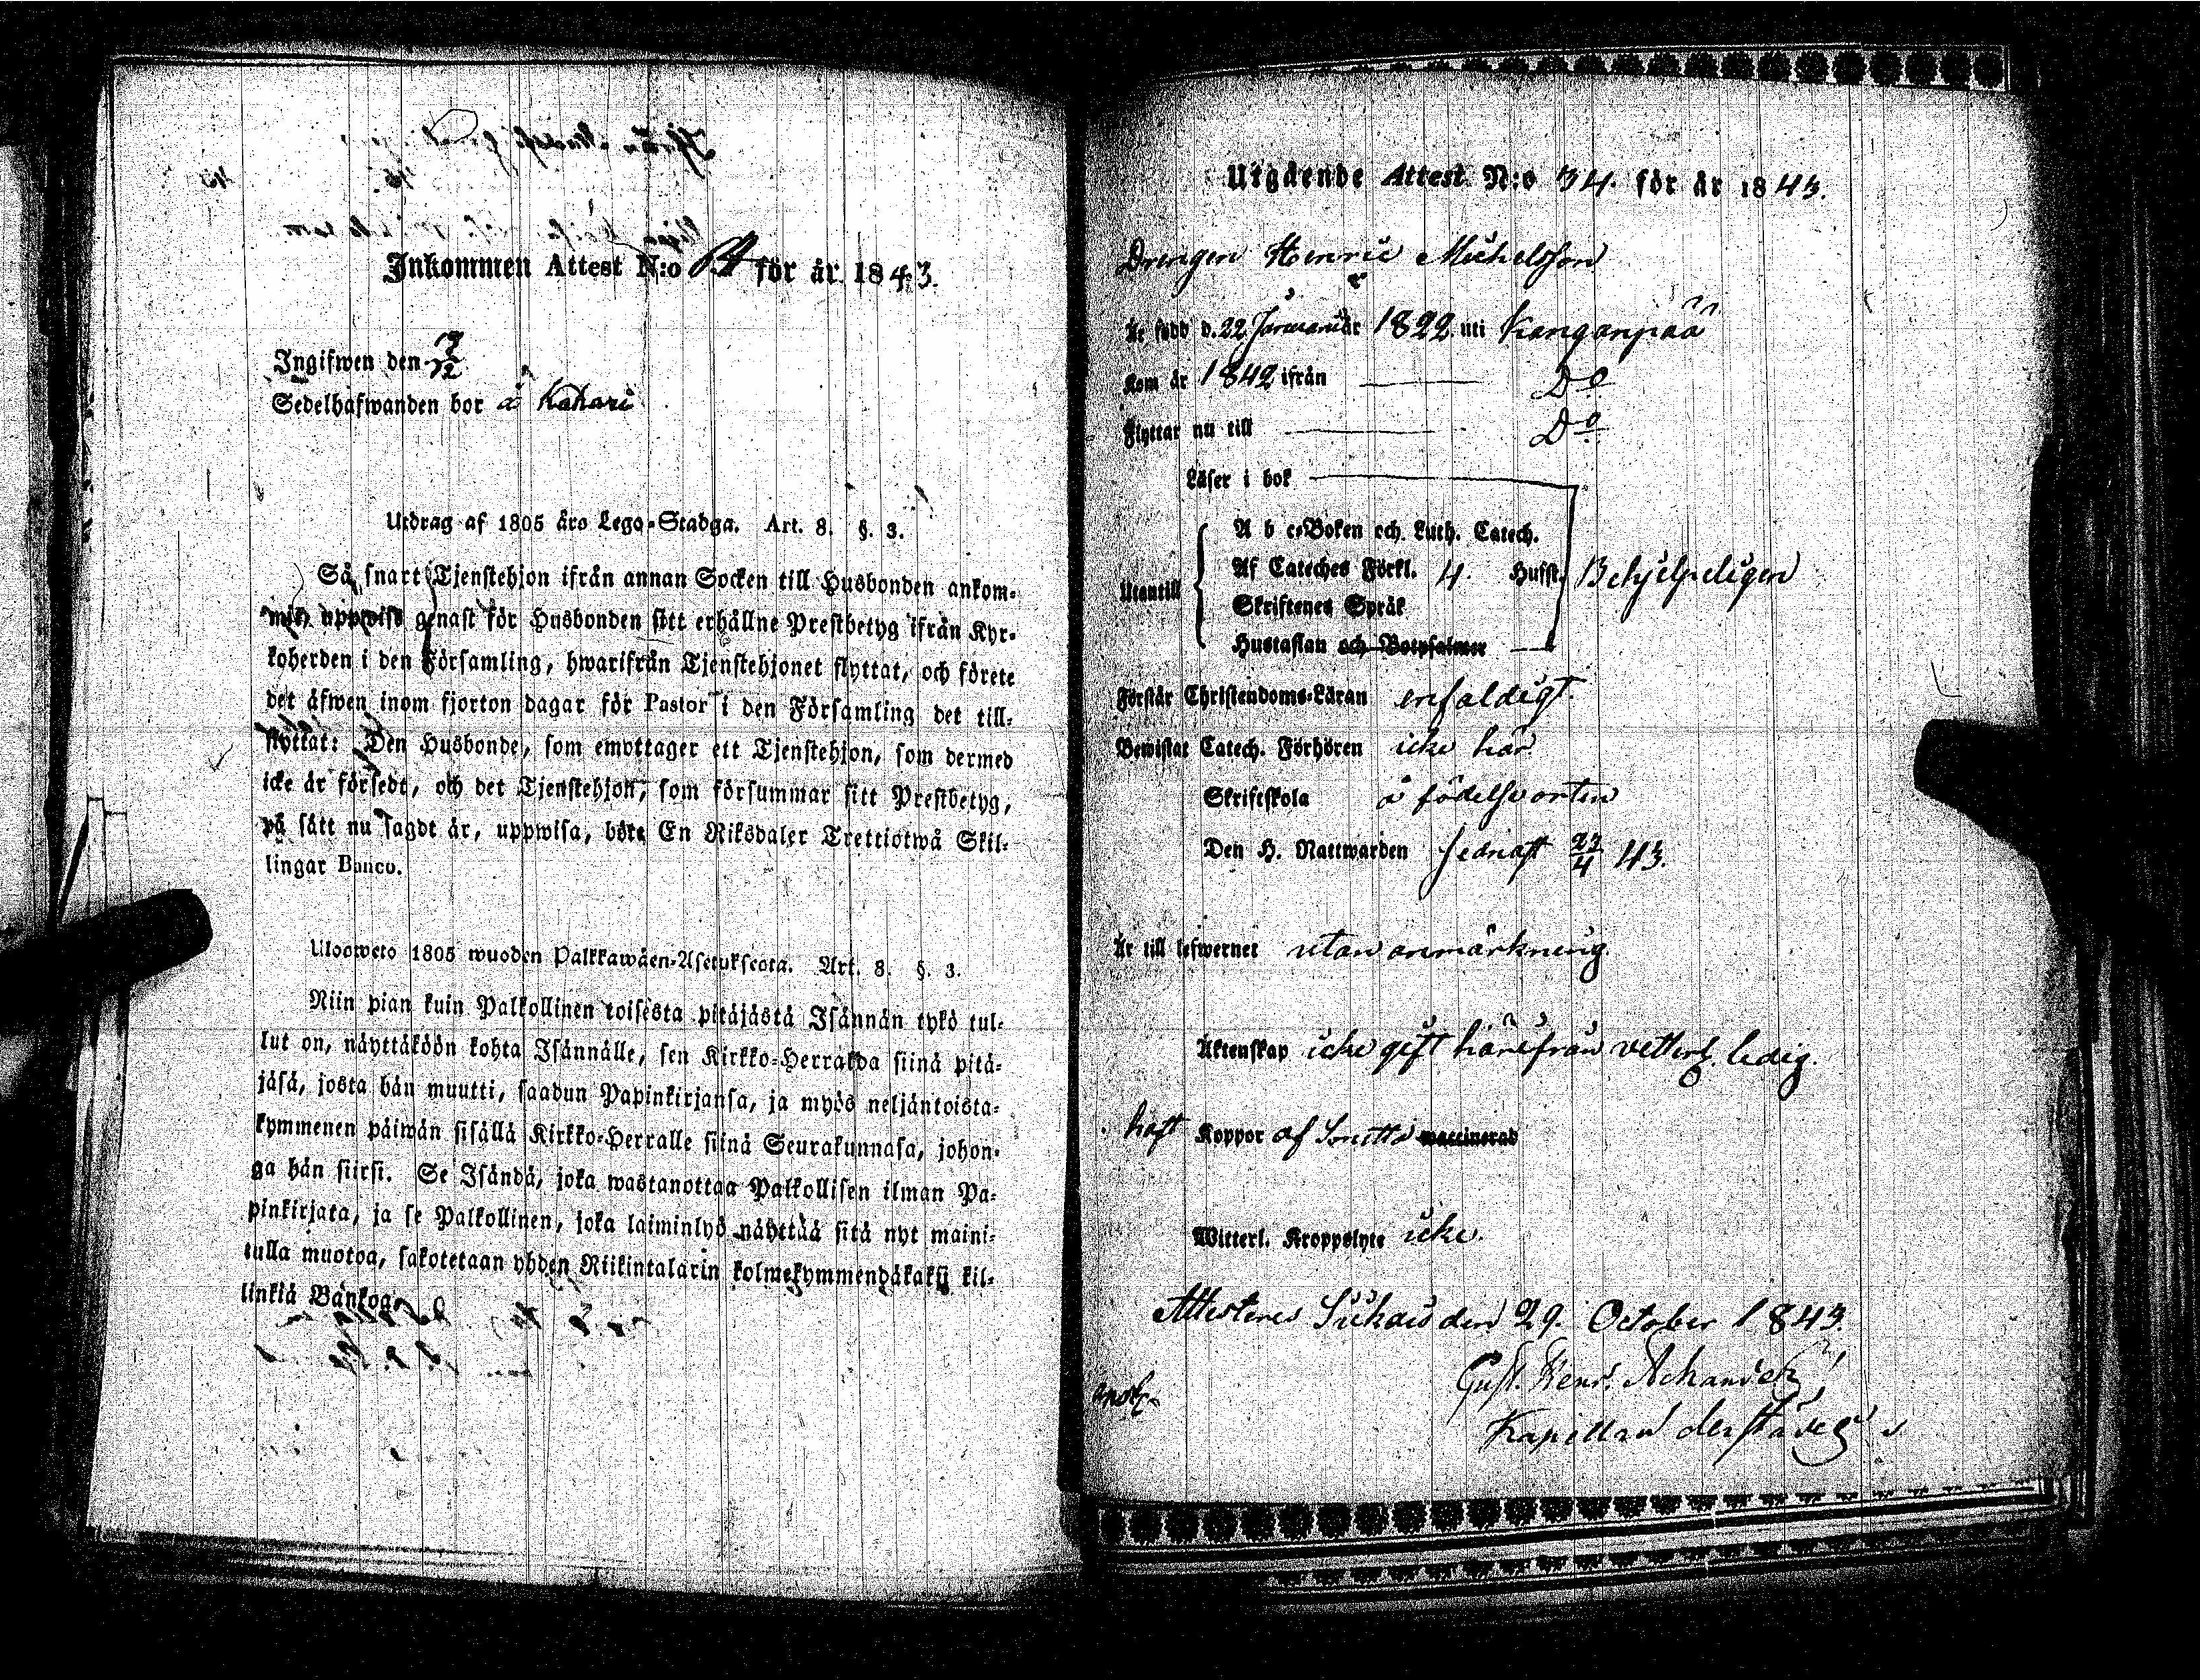 Inkommen Attest N:o för år 1843.
Ingifwen den
Sedelhafwanden bor å Kahari
Utdrag af 1805 års Lego-Stadga. Art. 8. §. 3.
Så snart Tjenstehjon ifrån annan Socken till Husbonden ankom-
mit, uppwise genast för Husbonden sitt erhållne Prestbetyg ifrån Kyr-
koherden i den Församling, hwarifrån Tjenstehjonet flyttat, och förete
det äfwen inom fjorton dagar för Pastor i den Församling det till-
flyttat: Den Husbonde, som emottager ett Tjenstehjon, som dermed
icke är försedt, och det Tjenstehjon, som försummar sitt Prestbetyg,
på sätt nu sagdt är, uppwisa, böte En Riksdaler Trettiotwå Skil-
lingar Banco.
Ulosweto 1805 wuoden Palkkawäen-Asetuksesta. Art. 8. §. 3.
Niin pian kuin Palkollinen toisesta pitäjästä Isännän tykö tul-
lut on, näyttäköön kohta Isännälle, sen Kirkko-Herralda siinä pitä-
jäsä, josta hän muutti, saadun Papinkirjansa, ja myös neljäntoista-
kymmenen päiwän sisällä Kirkko-Herralle siinä Seurakunnasa, johon-
ga hän siirsi. Se Isändä, joka wastanottaa Palkollisen ilman Pa-
pinkirjata, ja se Palkollinen, joka laiminlyö näyttää sitä nyt maini-
tulla muotoa, sakotetaan yhden Riikintalarin kolmekymmendäkaksi kil-
linkiä Bankoa.
Utgående Attest N:o 34. för år 1843.
Drengen Henric Michelsson
Är född d. 22 Januarii år 1822 uti Kanganpää
Kom år 1842 ifrån Do
Flyttar nu till Do
Läser i bok
A b c-Boken och Luth. Catech.
Af Cateches Förkl. 4. Hufst. Behjelpeligen
Utantill
Skriftenes Språk
Hustaflan och Botpsalmer
Förstår Christendoms-Läran enfaldigt.
Bewistat Catech. Förhören icke här
Skriftskola å födelseorten
Den H. Nattwarden sednast 23/4 43.
Är till lefwernet utan anmärkning.
Äktenskap icke gift härifrån vetterl. ledig.
haft Koppor af Smitta waccinerad
Witterl. Kroppslyte icke.
Attesteres Siikais den 29. October 1843.
Gust. Henr.
Kapellan derstädes